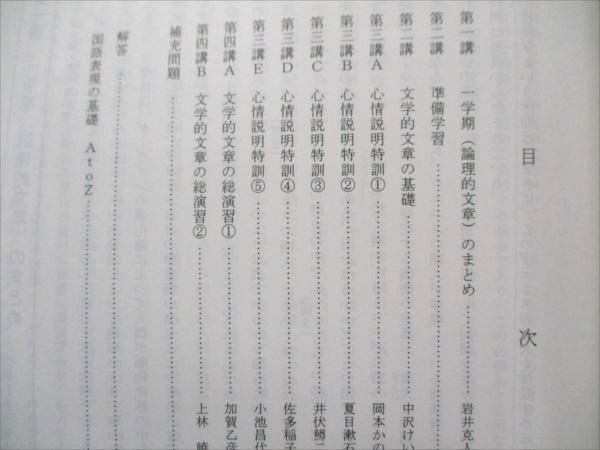 目次
第一講 一学期（論理的文章）のまとめ 岩井克人
第二講 準備学習
第二講 文学的文章の基礎 中沢けい
第三講A 心情説明特訓① 岡本かの
第三講B 心情説明特訓② 夏目漱石
第三講C 心情説明特訓③ 井伏鱒二
第三講D 心情説明特訓④ 佐多稲子
第三講E 心情説明特訓⑤ 小池昌代
第四講A 文学的文章の総演習① 加賀乙彦
第四講B 文学的文章の総演習② 上林 暁
補充問題
解答
国語表現の基礎 AtoZ